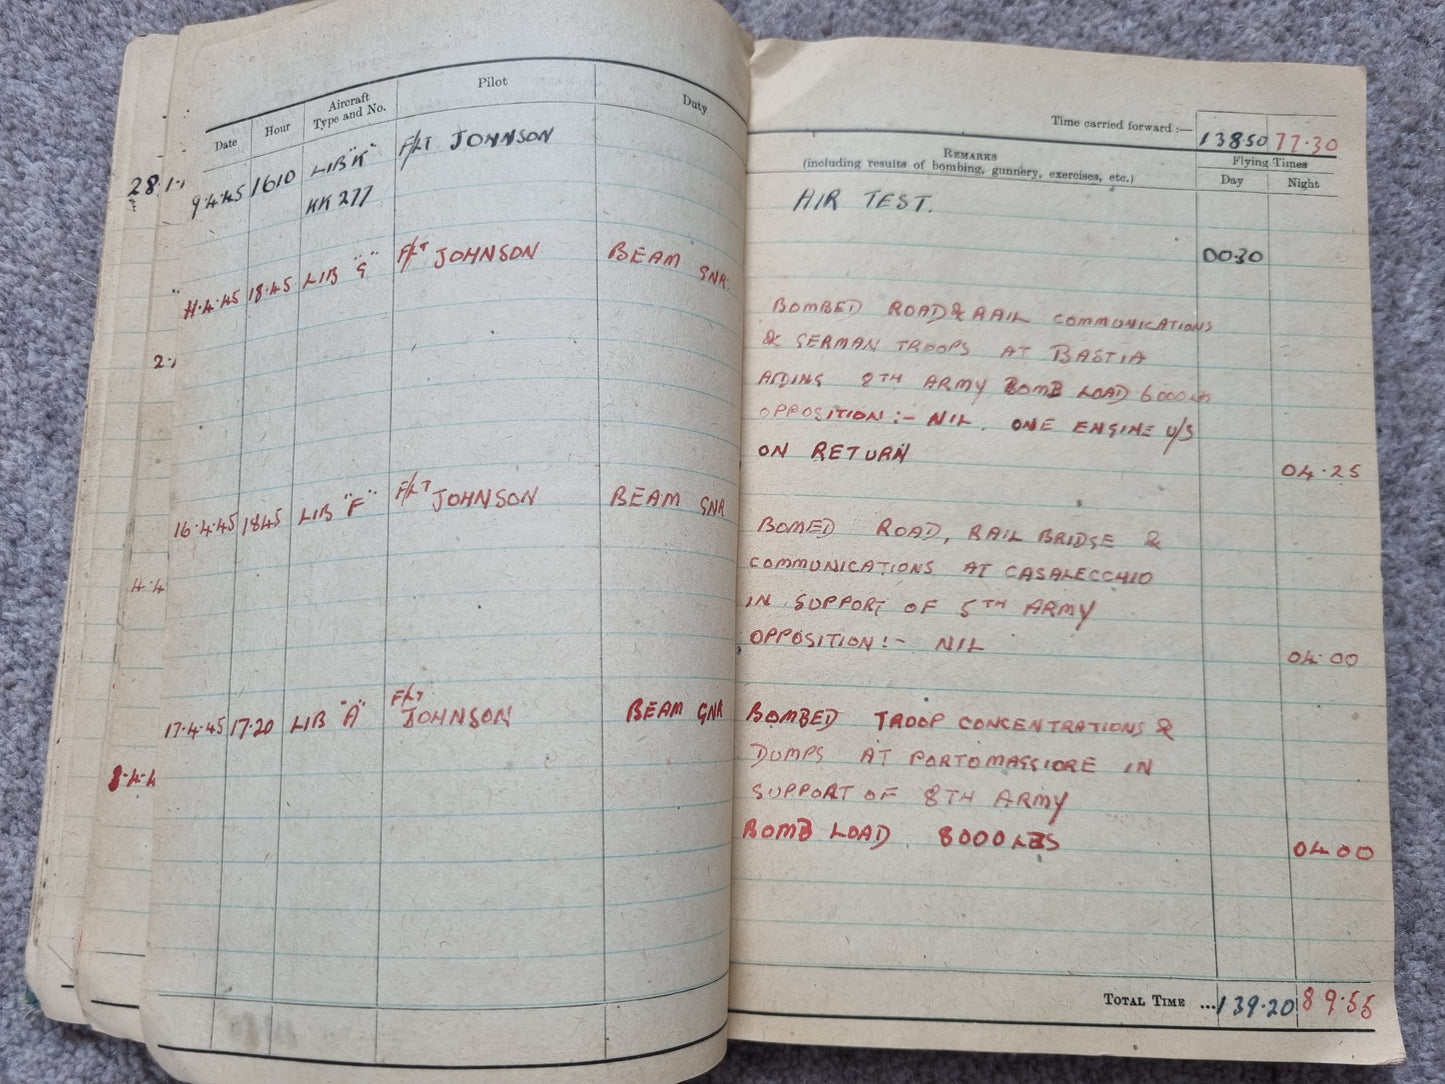 Date Hour Aircraft Type and No. Pilot Duty
Time carried forward :— 138·50 77·30
REMARKS
(including results of bombing, gunnery, exercises, etc.)
Flying Times
Day Night
28·1·
9·4·45 1610 LIB "K" F/LT JOHNSON
KK 277
AIR TEST.
0030
11·4·45 18·45 LIB "G" F/LT JOHNSON BEAM GNR.
BOMBED ROAD & RAIL COMMUNICATIONS
& GERMAN TROOPS AT BASTIA
AIDING 8TH ARMY BOMB LOAD 6000LBS
OPPOSITION :- NIL. ONE ENGINE U/S
ON RETURN
04·25
2·
16·4·45 1845 LIB "F" F/LT JOHNSON BEAM GNR
BOMED ROAD, RAIL BRIDGE &
COMMUNICATIONS AT CASALECCHIO
IN SUPPORT OF 5TH ARMY
OPPOSITION :- NIL
04·00
4·4
17·4·45 17·20 LIB "A" F/LT JOHNSON BEAM GNR
BOMBED TROOP CONCENTRATIONS &
DUMPS AT PORTOMAGGIORE IN
SUPPORT OF 8TH ARMY
BOMB LOAD 8000LBS
04·00
8·4·4
TOTAL TIME ... 139·20 89·55